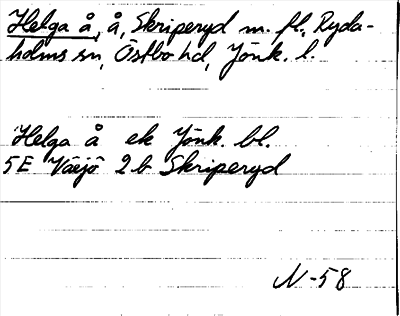 Helga å, å, Skriperyd m. fl., Ryda-
holms sn, Östbo hd, Jönk. l.
Helga å ek Jönk. bl.
5E Växjö 2b Skriperyd
N-58